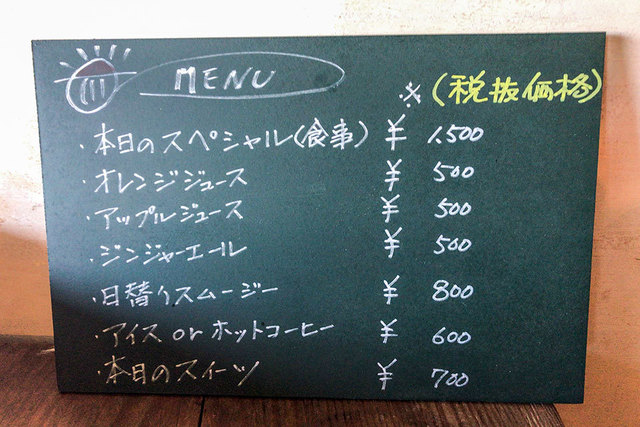 MENU
※(税抜価格)
・本日のスペシャル(食事) ¥ 1,500
・オレンジジュース ¥ 500
・アップルジュース ¥ 500
・ジンジャーエール ¥ 500
・日替りスムージー ¥ 800
・アイス or ホットコーヒー ¥ 600
・本日のスイーツ ¥ 700